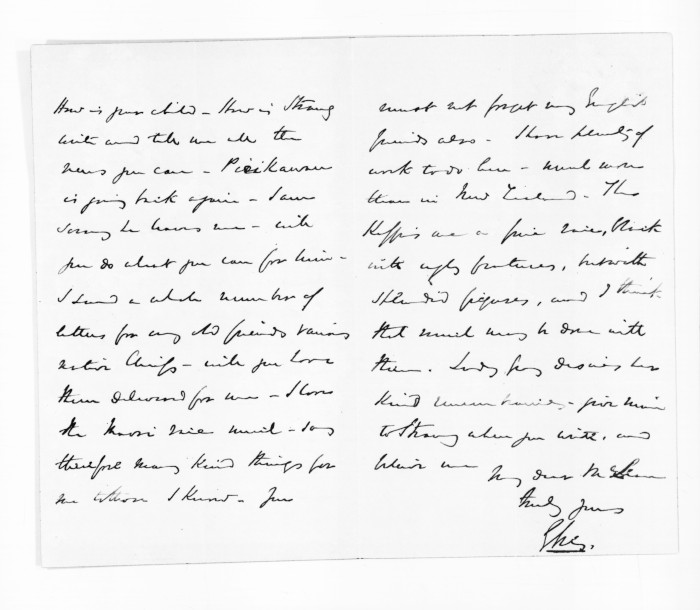 How is your child - How is Strang
write and tell me all the
news you can - Pirikawau
is going back again - I am
sorry he leaves me - will
you do what you can for him -
I send a whole number of
letters for my old friends various
native Chiefs - will you have
them delivered for me - I love
the Maori race much - say
therefore many kind things for
me to those I know - You
must not forget my English
friends also - I have plenty of
work to do here - much more
than in New Zealand - The
Kaffirs are a fine race, black
with ugly features, but with
splendid figures, and I think
that much may be done with
them. Lady Grey desires her
kind remembrances - give mine
to Strang when you write, and
believe me my dear McLean
truly yours
G Grey.